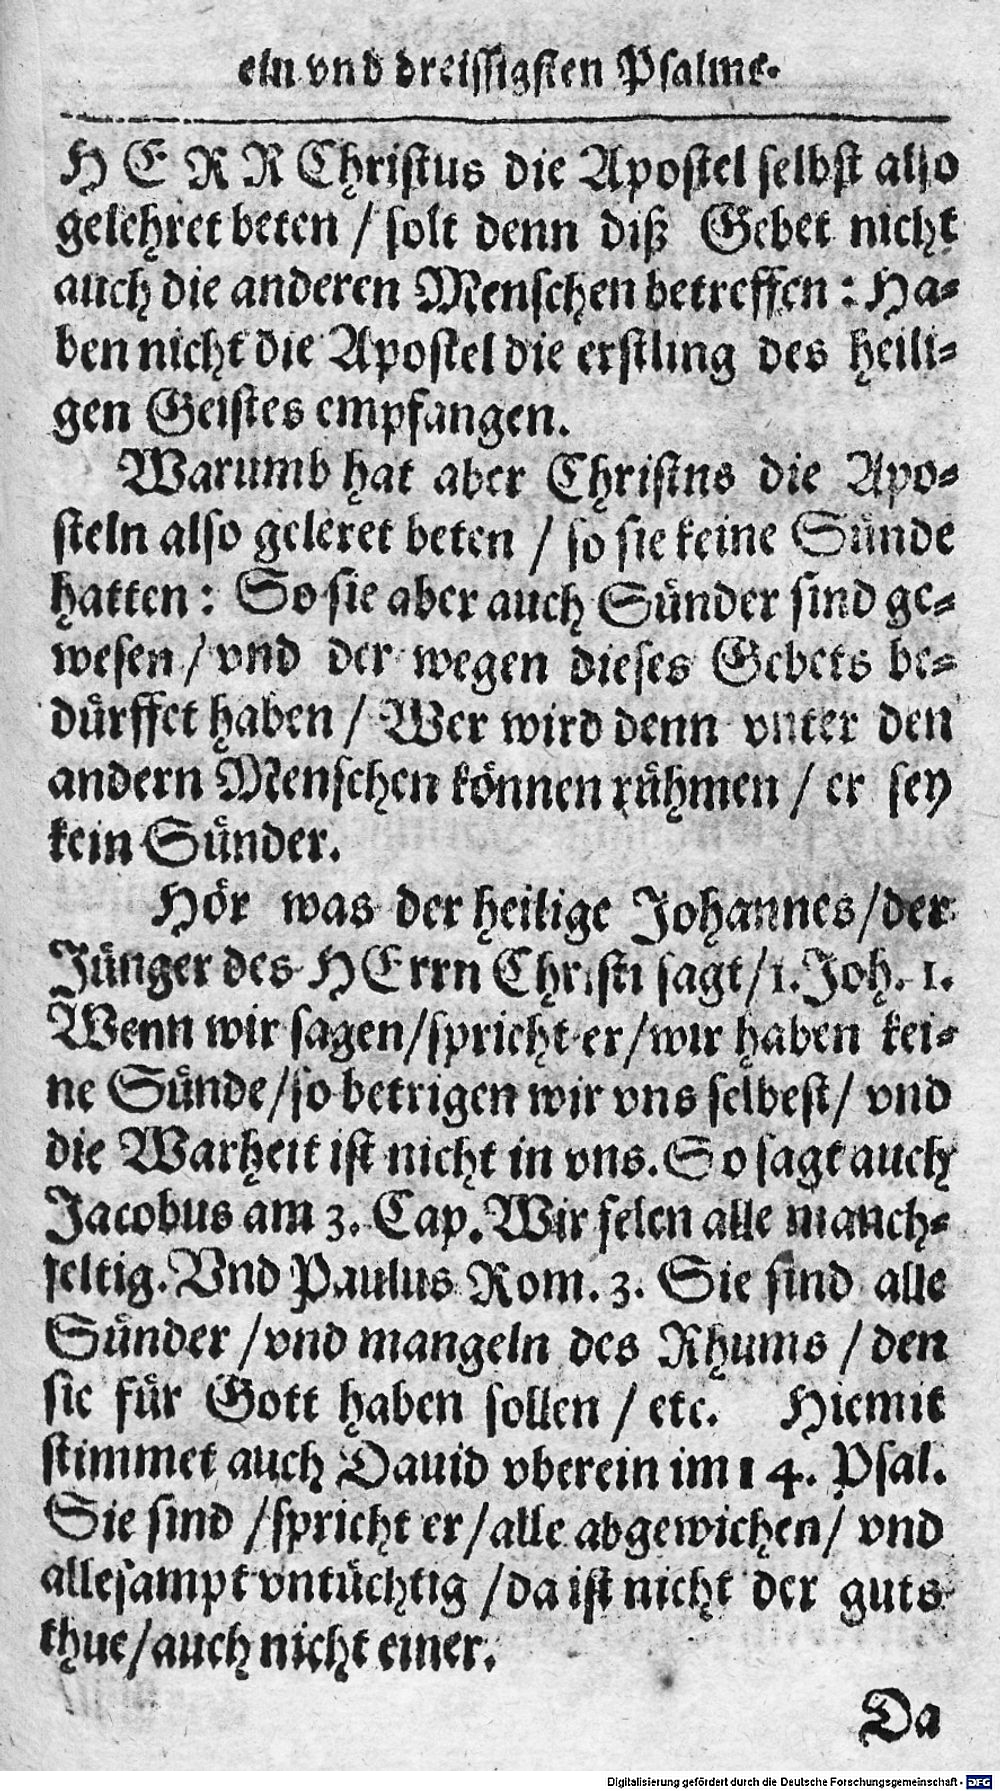 ein vnd dreissigsten Psalme.
HERR Christus die Apostel selbst also
gelehret beten / solt denn diß Gebet nicht
auch die anderen Menschen betreffen: Ha-
ben nicht die Apostel die erstling des heili-
gen Geistes empfangen.
Warumb hat aber Christns die Apo-
steln also geleret beten / so sie keine Sünde
hatten: So sie aber auch Sünder sind ge-
wesen / vnd der wegen dieses Gebets be-
dürffet haben / Wer wird denn vnter den
andern Menschen können rühmen / er sey
kein Sünder.
Hör was der heilige Johannes / der
Jünger des HErrn Christi sagt / 1. Joh. 1.
Wenn wir sagen / spricht er / wir haben kei-
ne Sünde / so betrigen wir vns selbest / vnd
die Warheit ist nicht in vns. So sagt auch
Jacobus am 3. Cap. Wir felen alle manch-
feltig. Vnd Paulus Rom. 3. Sie sind alle
Sünder / vnd mangeln des Rhums / den
sie für Gott haben sollen / etc. Hiemit
stimmet auch Dauid vberein im 14. Psal.
Sie sind / spricht er / alle abgewichen / vnd
allesampt vntüchtig / da ist nicht der guts
thue / auch nicht einer.
Da
Digitalisierung gefördert durch die Deutsche Forschungsgemeinschaft - DFG